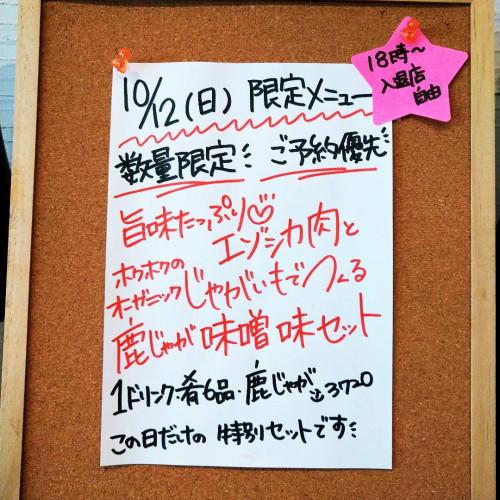 10/12(日) 限定メニュー
数量限定 ご予約優先
旨味たっぷり♡
エゾシカ肉と
ホクホクの
オーガニックじゃがいもでつくる
鹿じゃが味噌味セット
1ドリンク・肴6品・鹿じゃが 3720
この日だけの 特別セットです
18時〜
入退店
自由